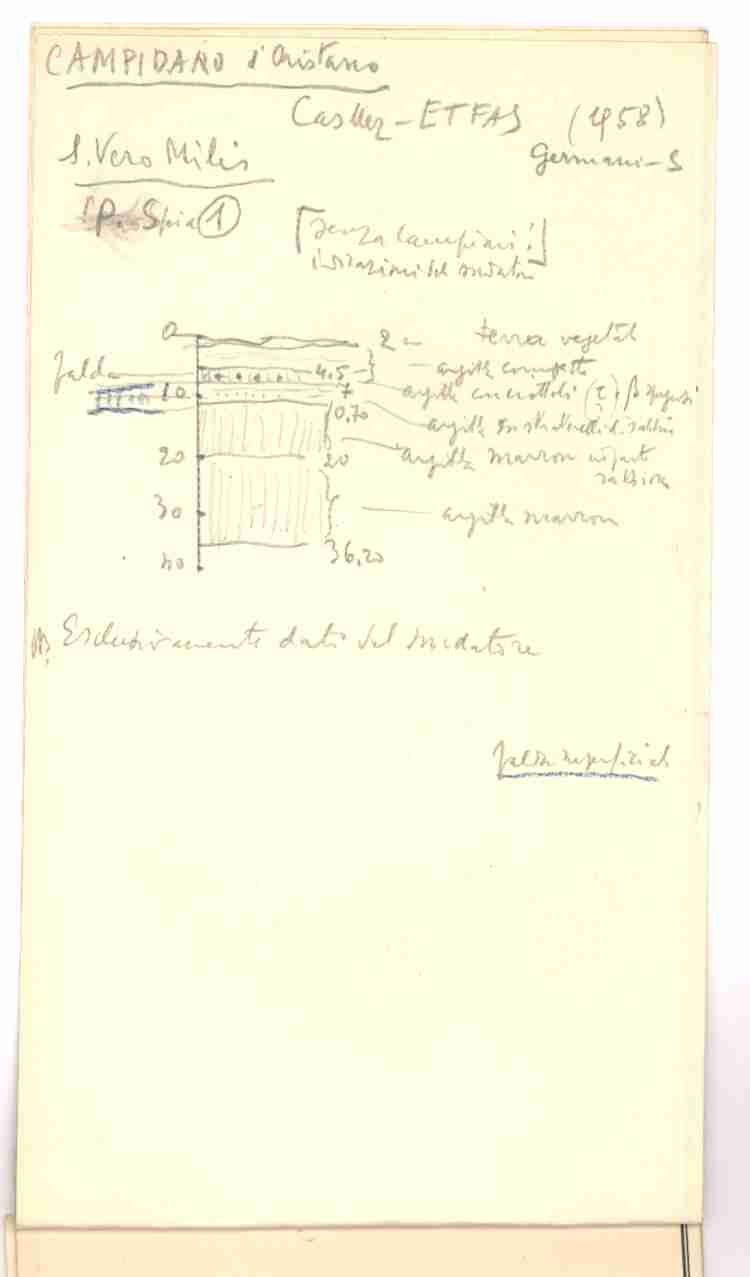 CAMPIDANO d'Oristano
Casmez - ETFAS (1958)
S. Vero Milis
Germani - S
P. Spia 1
[senza campioni!]
indicazioni del sondatore
0
2 m terra vegetale
falda
4.5 argilla compatta
10
7 argilla con ciottoli
10,70
argilla
20
20 argilla marron
sabbiosa
30
argilla marron
36,20
40
Esclusivamente dati del sondatore
falda superficiale